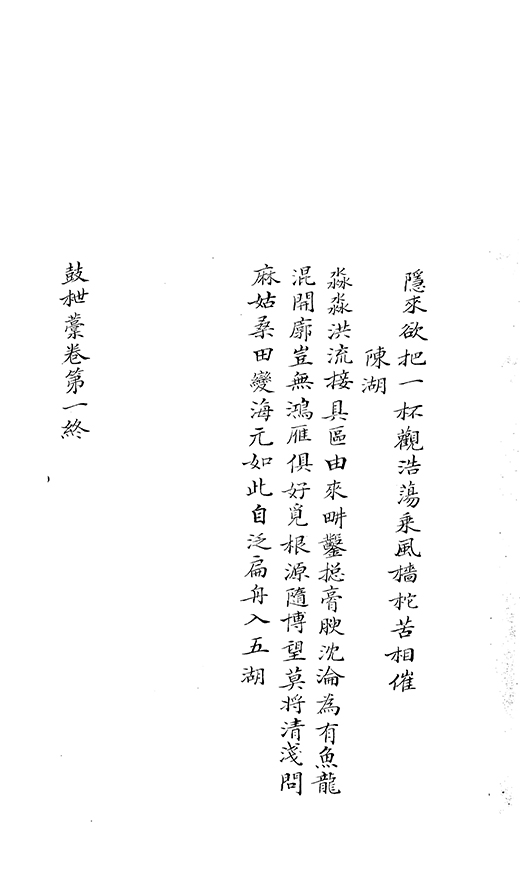 隱來欲把一杯觀浩蕩乗風檣柁苦相催
陳湖
淼淼洪流接具區由來畊鑿揔膏腴沈淪為有魚龍
混開廓豈無鴻雁俱好覓根源隨博望莫将清淺問
麻姑桑田變海元如此自泛扁舟入五湖
鼓枻藁卷第一終